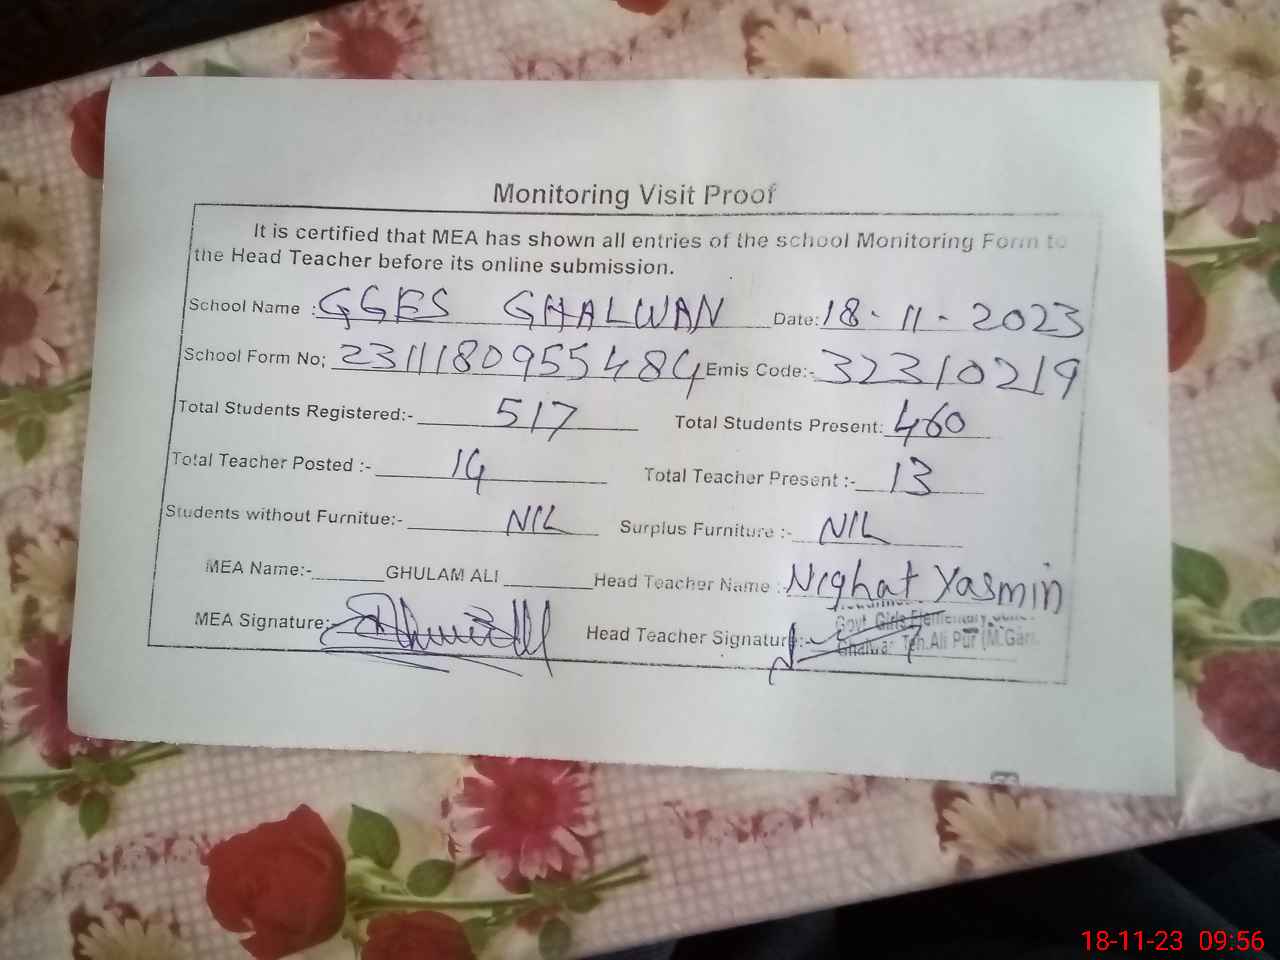 Monitoring Visit Proof
It is certified that MEA has shown all entries of the school Monitoring Form to
the Head Teacher before its online submission.
School Name :GGES GHALWAN Date:18-11-2023
School Form No; 2311180955484 Emis Code:-32310219
Total Students Registered:- 517 Total Students Present: 460
Total Teacher Posted :- 14 Total Teacher Present :- 13
Students without Furnitue:- NIL Surplus Furniture :- NIL
MEA Name:- GHULAM ALI Head Teacher Name :Nighat Yasmin
MEA Signature:- Head Teacher Signature:-
Govt. Girls Elementary
Teh.Ali Pur
18-11-23 09:56